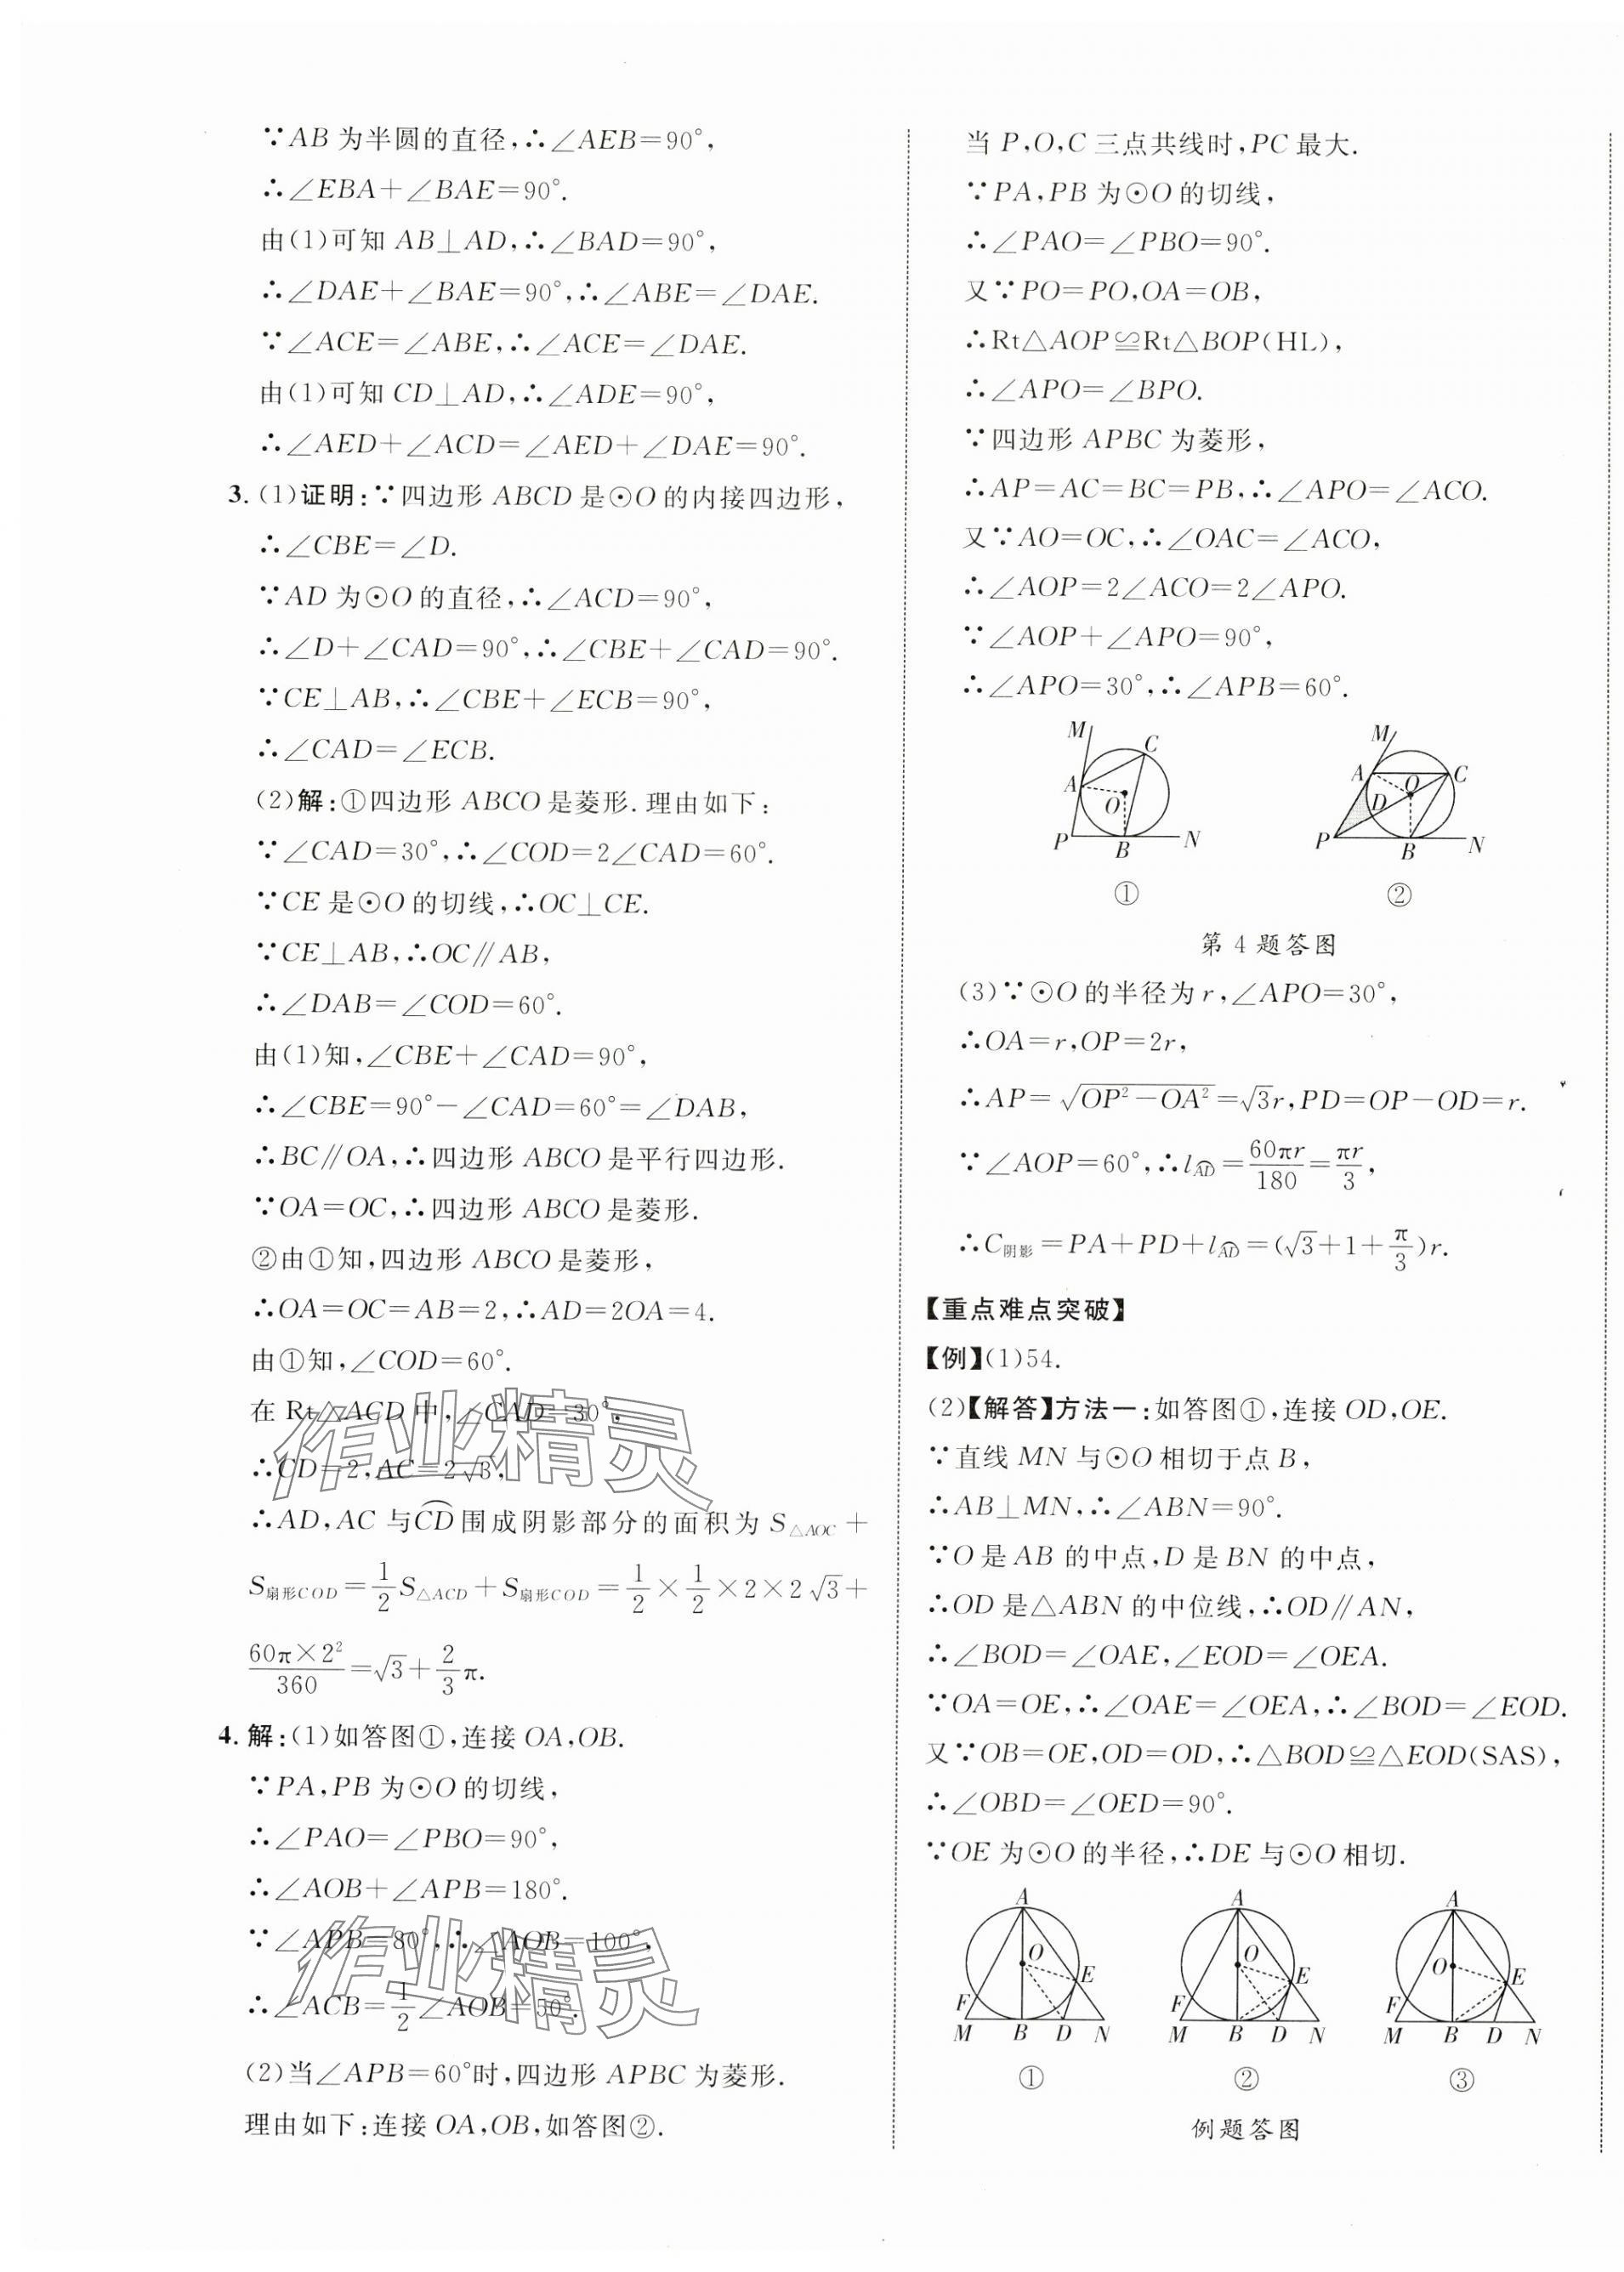 ∵AB为半圆的直径,∴∠AEB=90°,
∴∠EBA+∠BAE=90°.
由(1)可知AB⊥AD,∴∠BAD=90°,
∴∠DAE+∠BAE=90°,∴∠ABE=∠DAE.
∵∠ACE=∠ABE,∴∠ACE=∠DAE.
由(1)可知CD⊥AD,∴∠ADE=90°,
∴∠AED+∠ACD=∠AED+∠DAE=90°.
3.(1)证明:∵四边形ABCD是⊙O的内接四边形,
∴∠CBE=∠D.
∵AD为⊙O的直径,∴∠ACD=90°,
∴∠D+∠CAD=90°,∴∠CBE+∠CAD=90°.
∵CE⊥AB,∴∠CBE+∠ECB=90°,
∴∠CAD=∠ECB.
(2)解:①四边形ABCO是菱形.理由如下:
∵∠CAD=30°,∴∠COD=2∠CAD=60°.
∵CE是⊙O的切线,∴OC⊥CE.
∵CE⊥AB,∴OC∥AB,
∴∠DAB=∠COD=60°.
由(1)知,∠CBE+∠CAD=90°,
∴∠CBE=90°-∠CAD=60°=∠DAB,
∴BC∥OA,∴四边形ABCO是平行四边形.
∵OA=OC,∴四边形ABCO是菱形.
②由①知,四边形ABCO是菱形,
∴OA=OC=AB=2,∴AD=2OA=4.
由①知,∠COD=60°.
在Rt△ACD中,∠CAD=30°,
∴CD=2,AC=2√3,
∴AD,AC与⌒CD围成阴影部分的面积为S△AOC+
S扇形COD=1/2S△ACD+S扇形COD=1/2×1/2×2×2√3+
60π×2²/360=√3+2/3π.
4.解:(1)如答图①,连接OA,OB.
∵PA,PB为⊙O的切线,
∴∠PAO=∠PBO=90°,
∴∠AOB+∠APB=180°.
∵∠APB=80°,∴∠AOB=100°,
∴∠ACB=1/2∠AOB=50°.
(2)当∠APB=60°时,四边形APBC为菱形.
理由如下:连接OA,OB,如答图②.
作业精灵
作业精灵
当P,O,C三点共线时,PC最大.
∵PA,PB为⊙O的切线,
∴∠PAO=∠PBO=90°.
又∵PO=PO,OA=OB,
∴Rt△AOP≌Rt△BOP(HL),
∴∠APO=∠BPO.
∵四边形APBC为菱形,
∴AP=AC=BC=PB,∴∠APO=∠ACO.
又∵AO=OC,∴∠OAC=∠ACO,
∴∠AOP=2∠ACO=2∠APO.
∵∠AOP+∠APO=90°,
∴∠APO=30°,∴∠APB=60°.
M C A O P B N
M A O C D P B N
① ②
第4题答图
(3)∵⊙O的半径为r,∠APO=30°,
∴OA=r,OP=2r,
∴AP=√(OP²-OA²)=√3r,PD=OP-OD=r.
∵∠AOP=60°,∴l⌒AD=60πr/180=πr/3,
∴C阴影=PA+PD+l⌒AD=(√3+1+π/3)r.
【重点难点突破】
【例】(1)54.
(2)【解答】方法一:如答图①,连接OD,OE.
∵直线MN与⊙O相切于点B,
∴AB⊥MN,∴∠ABN=90°.
∵O是AB的中点,D是BN的中点,
∴OD是△ABN的中位线,∴OD∥AN,
∴∠BOD=∠OAE,∠EOD=∠OEA.
∵OA=OE,∴∠OAE=∠OEA,∴∠BOD=∠EOD.
又∵OB=OE,OD=OD,∴△BOD≌△EOD(SAS),
∴∠OBD=∠OED=90°.
∵OE为⊙O的半径,∴DE与⊙O相切.
A O E F M B D N
A O E F M B D N
A O E F M B D N
① ② ③
例题答图